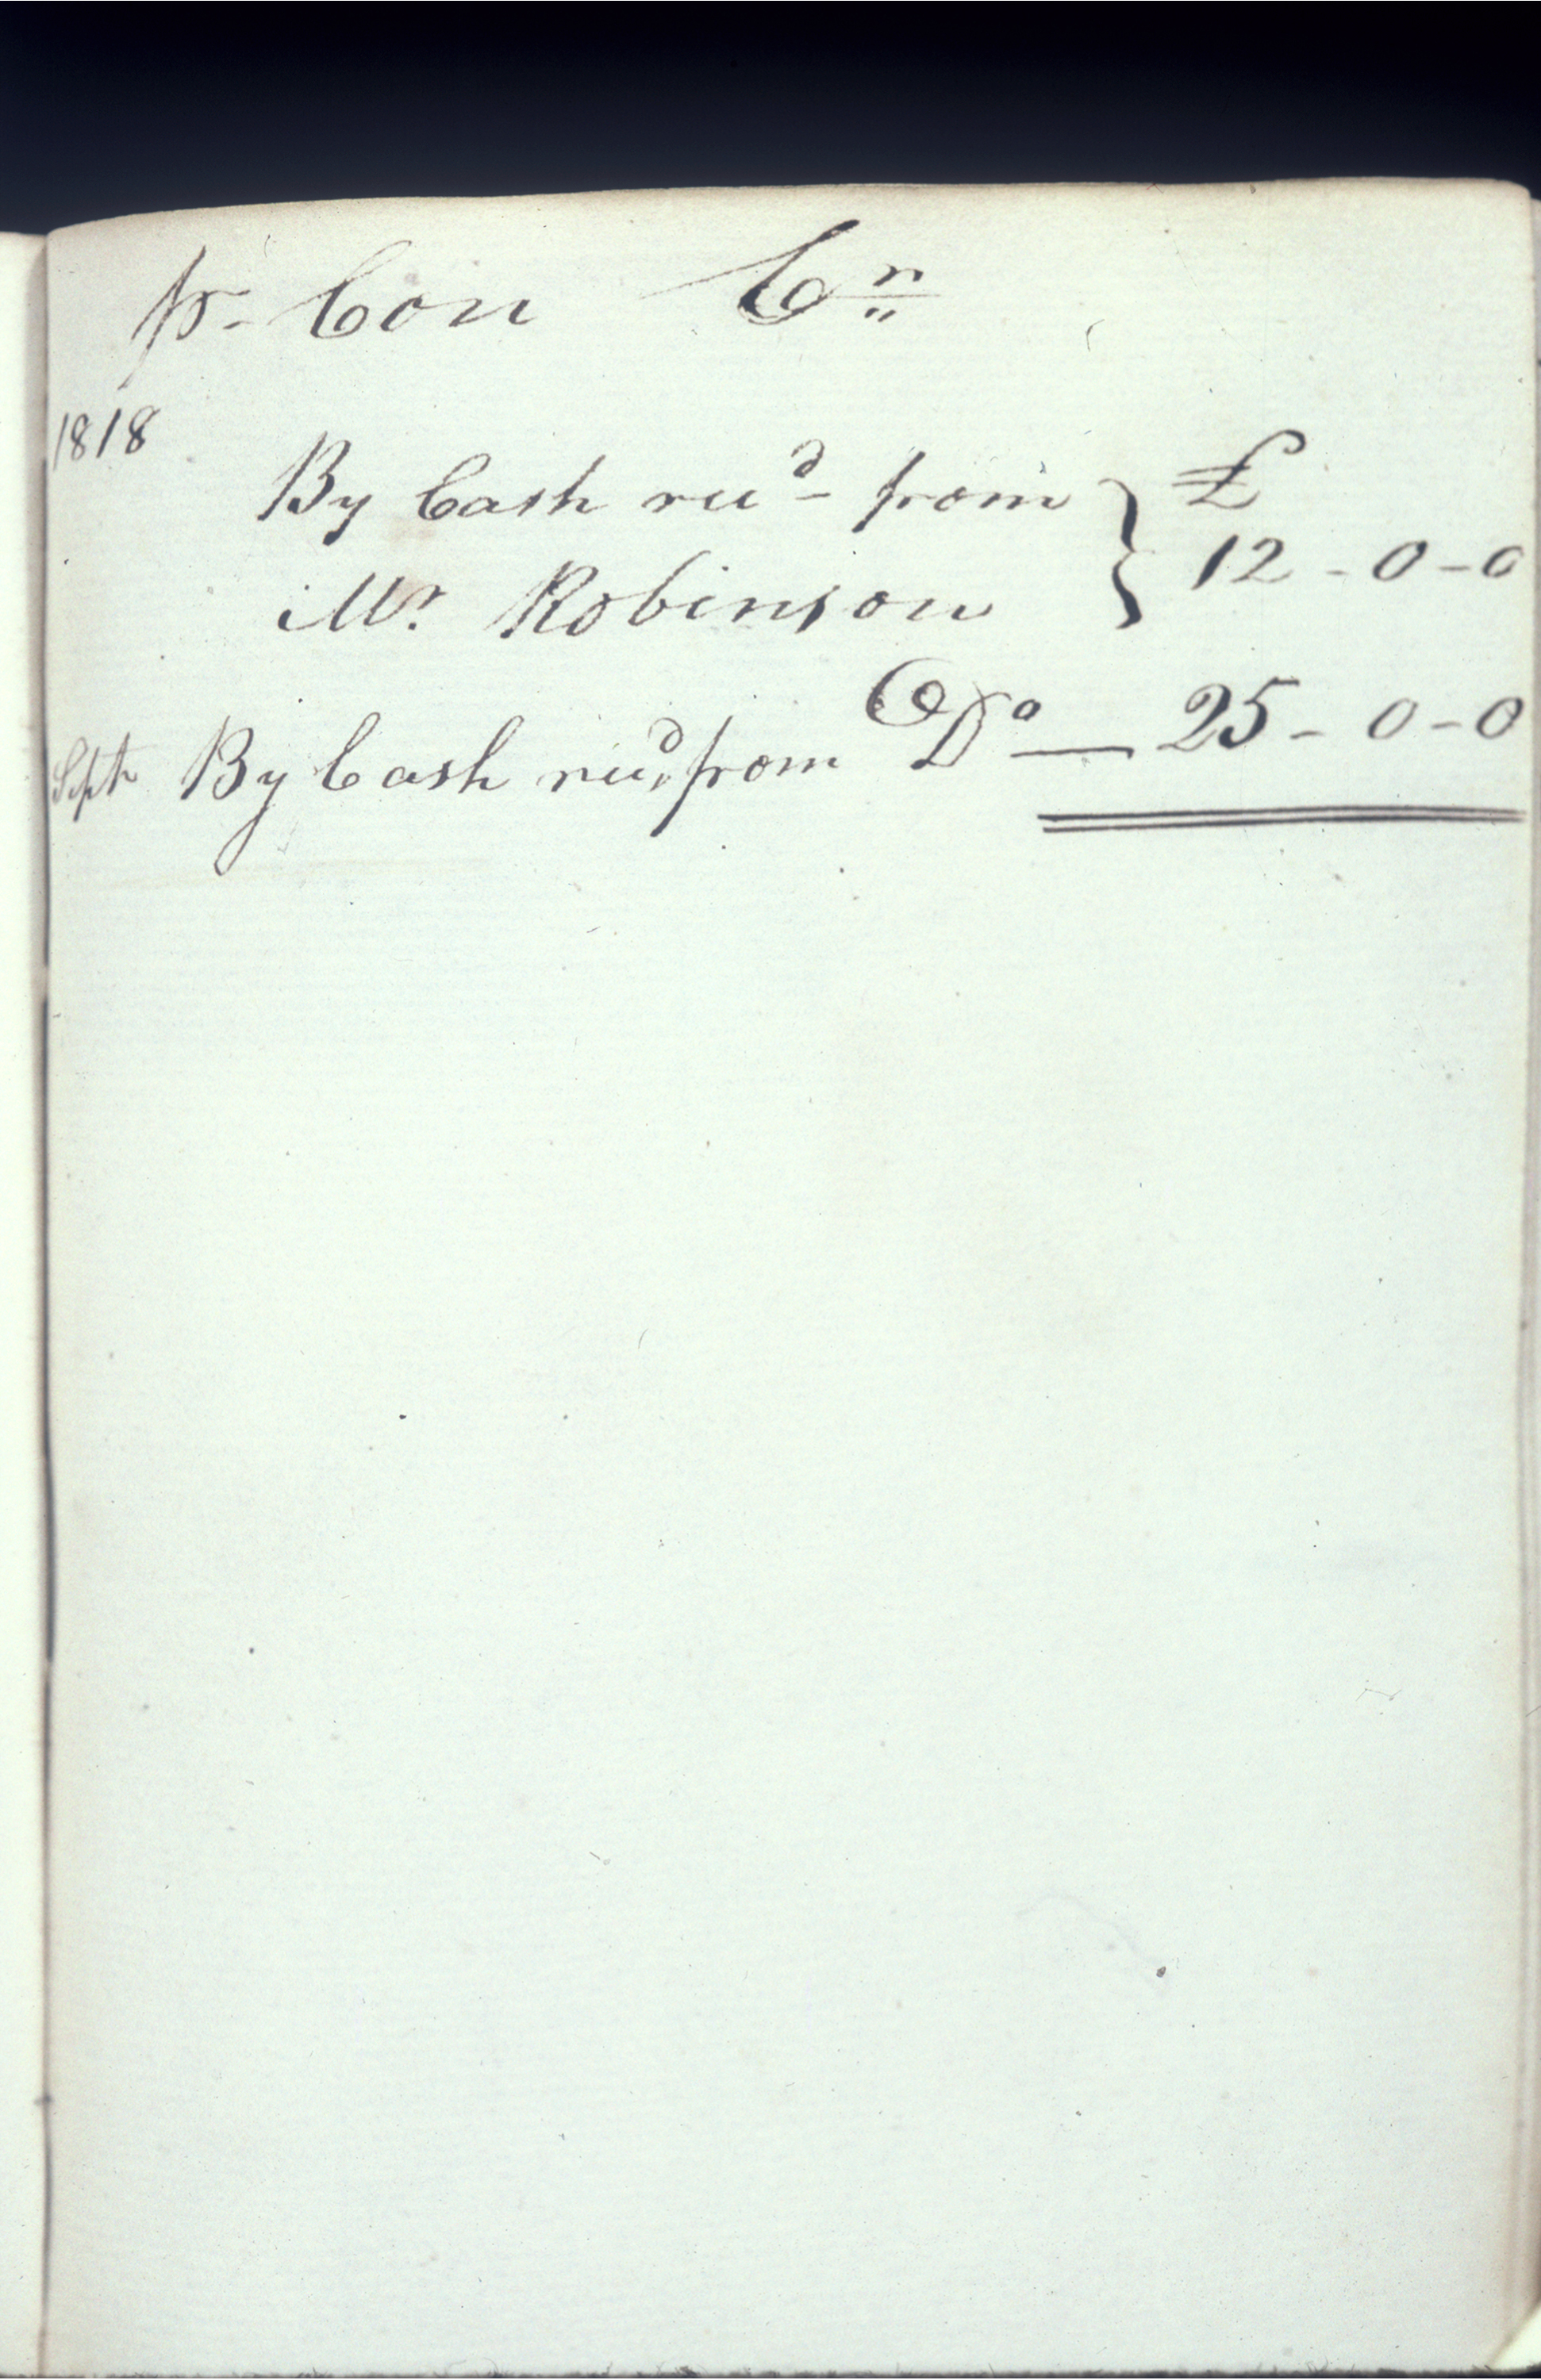 pr. Con Cr
1818
By Cash recd from } £
Mr. Robinson } 12 - 0 - 0
Sept By Cash recd from Do — 25 - 0 - 0